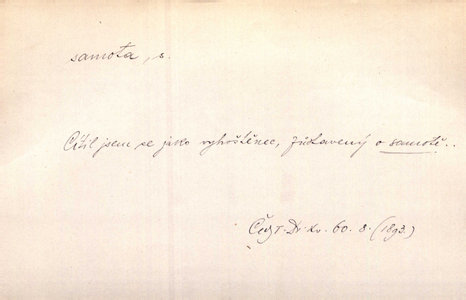 samota, s.
Cítil jsem se jako vyhoštěnec, zůstavený o samotě..
60. 8. (1893)